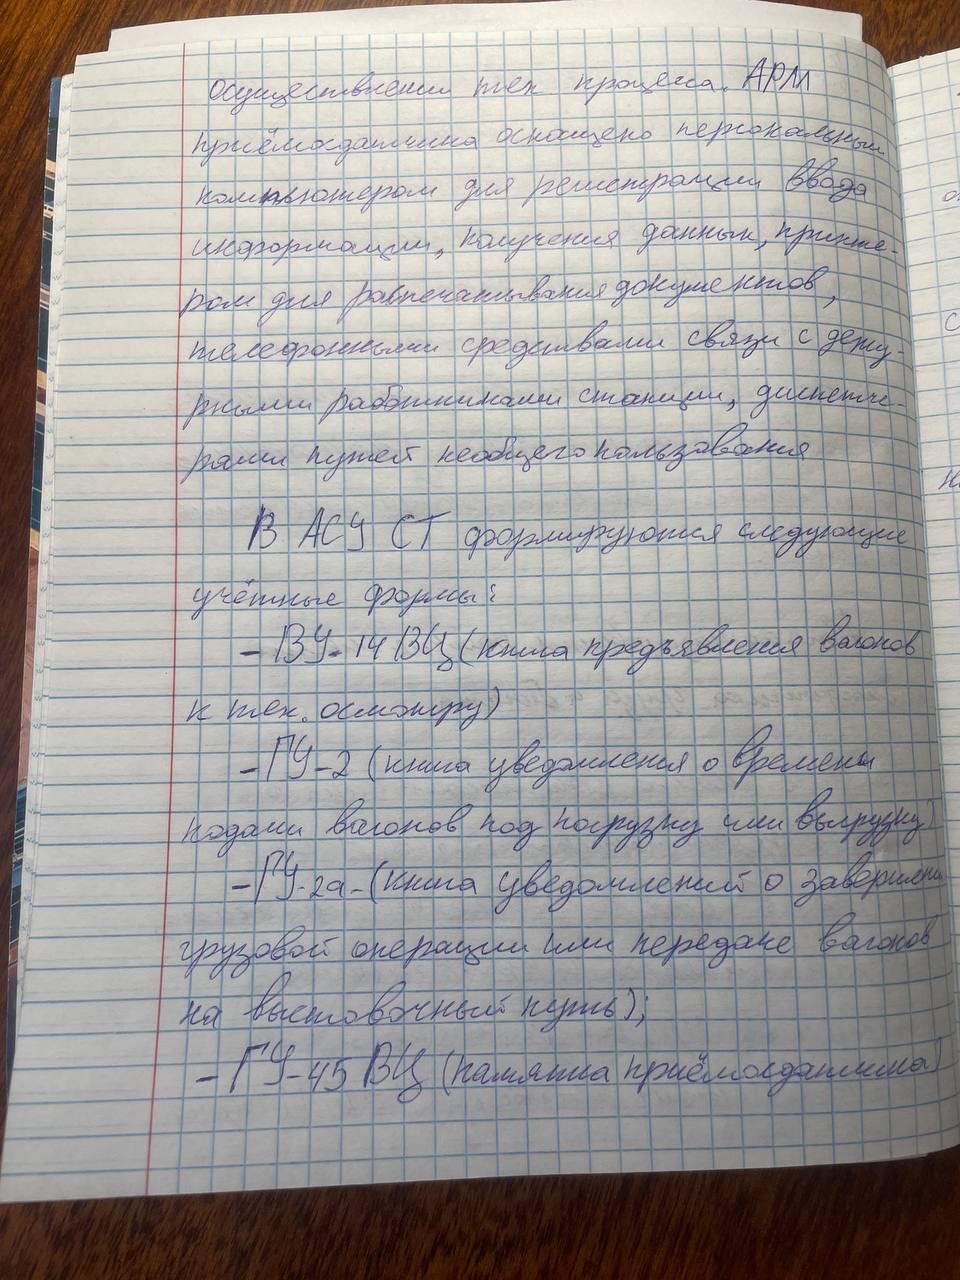 осуществления тех процесса. АРМ
приёмосдатчика оснащено персональным
компьютером для регистрации ввода
информации, получения данных, принте-
ром для распечатывания документов,
телефонными средствами связи с дежу-
рными работниками станции, диспетче-
рами путей необщего пользования
В АСУ СТ формируются следующие
учётные формы:
- ВУ-14 ВЦ (книга предъявления вагонов
к тех. осмотру)
- ГУ-2 (книга уведомления о времени
подачи вагонов под погрузку или выгрузку)
- ГУ-2а- (книга уведомлений о завершении
грузовой операции или передаче вагонов
на выставочный путь);
- ГУ-45 ВЦ (памятка приёмосдатчика)